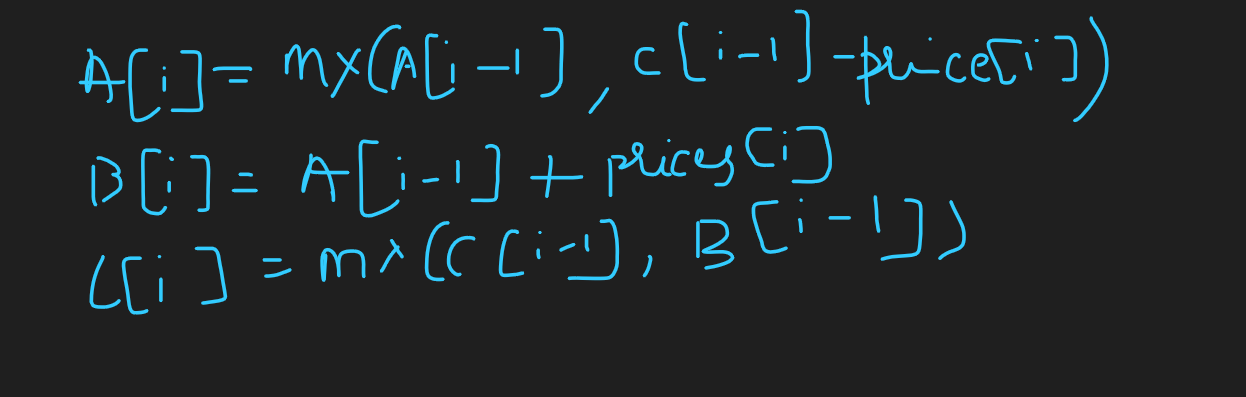 A[i] = mx(A[i-1], c[i-1]-price[i])
B[i] = A[i-1] + prices[i]
C[i] = mx(C[i-1], B[i-1])